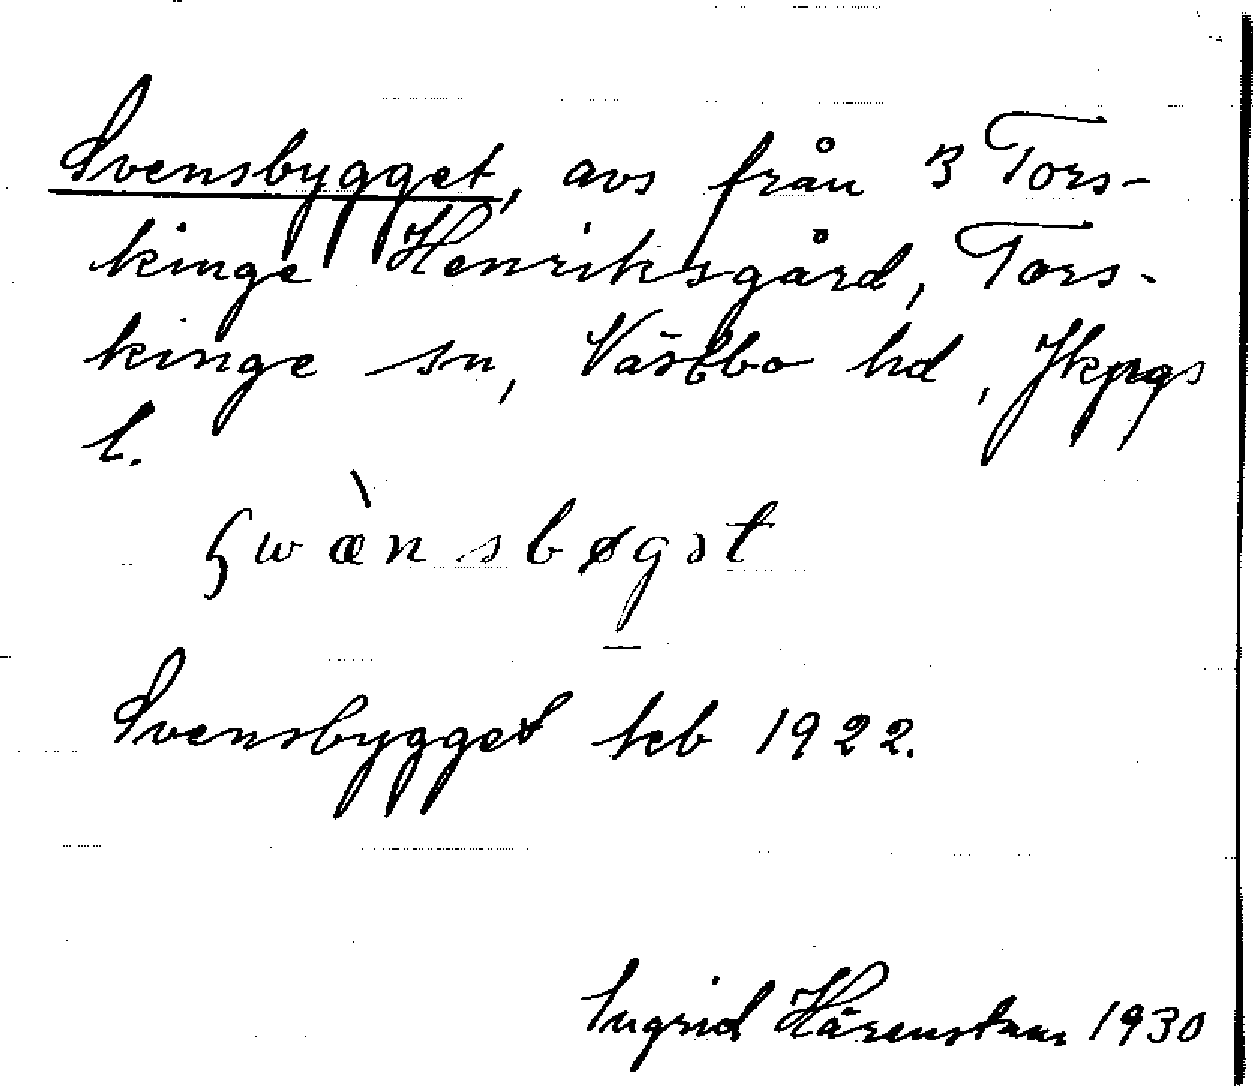 Svensbygget, avs från 3 Tors-
kinge Henriksgård, Tors-
kinge sn, Västbo hd, Jkpgs
l.
ʂwæ̀nsbøgət
Svensbygget teb 1922.
Ingrid Härenstam 1930